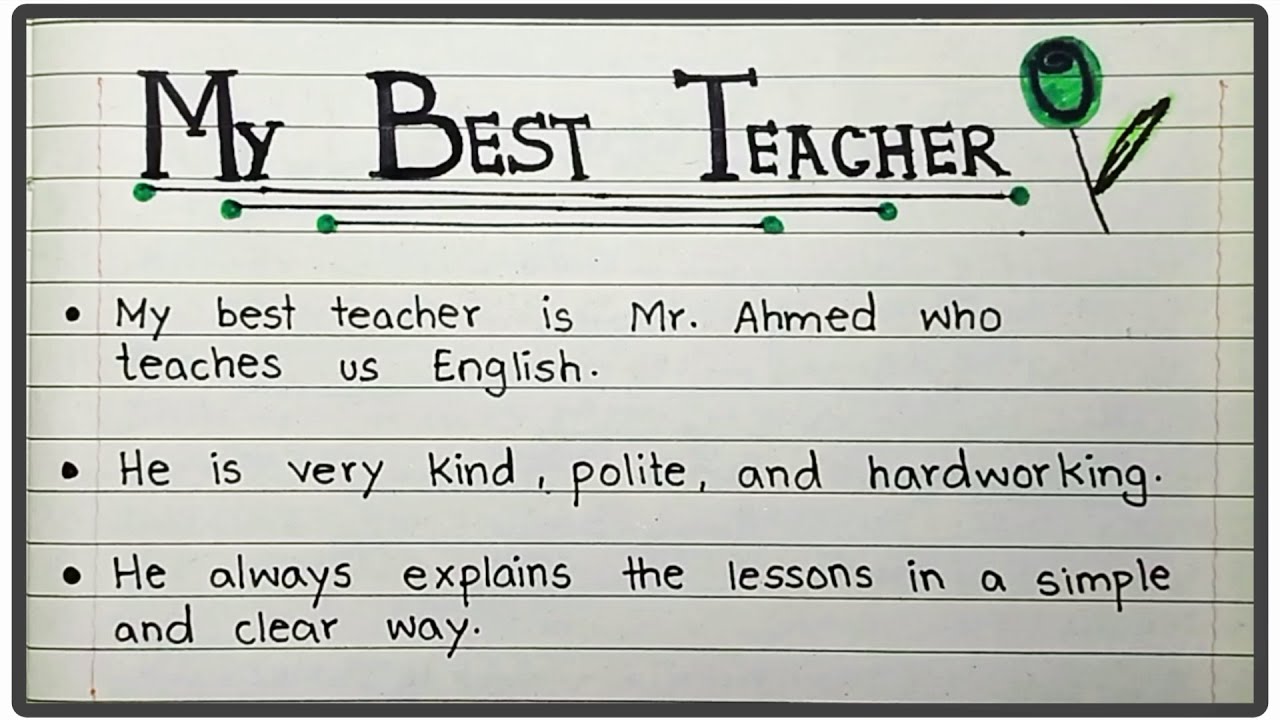 My Best Teacher
• My best teacher is Mr. Ahmed who
teaches us English.
• He is very kind, polite, and hardworking.
• He always explains the lessons in a simple
and clear way.